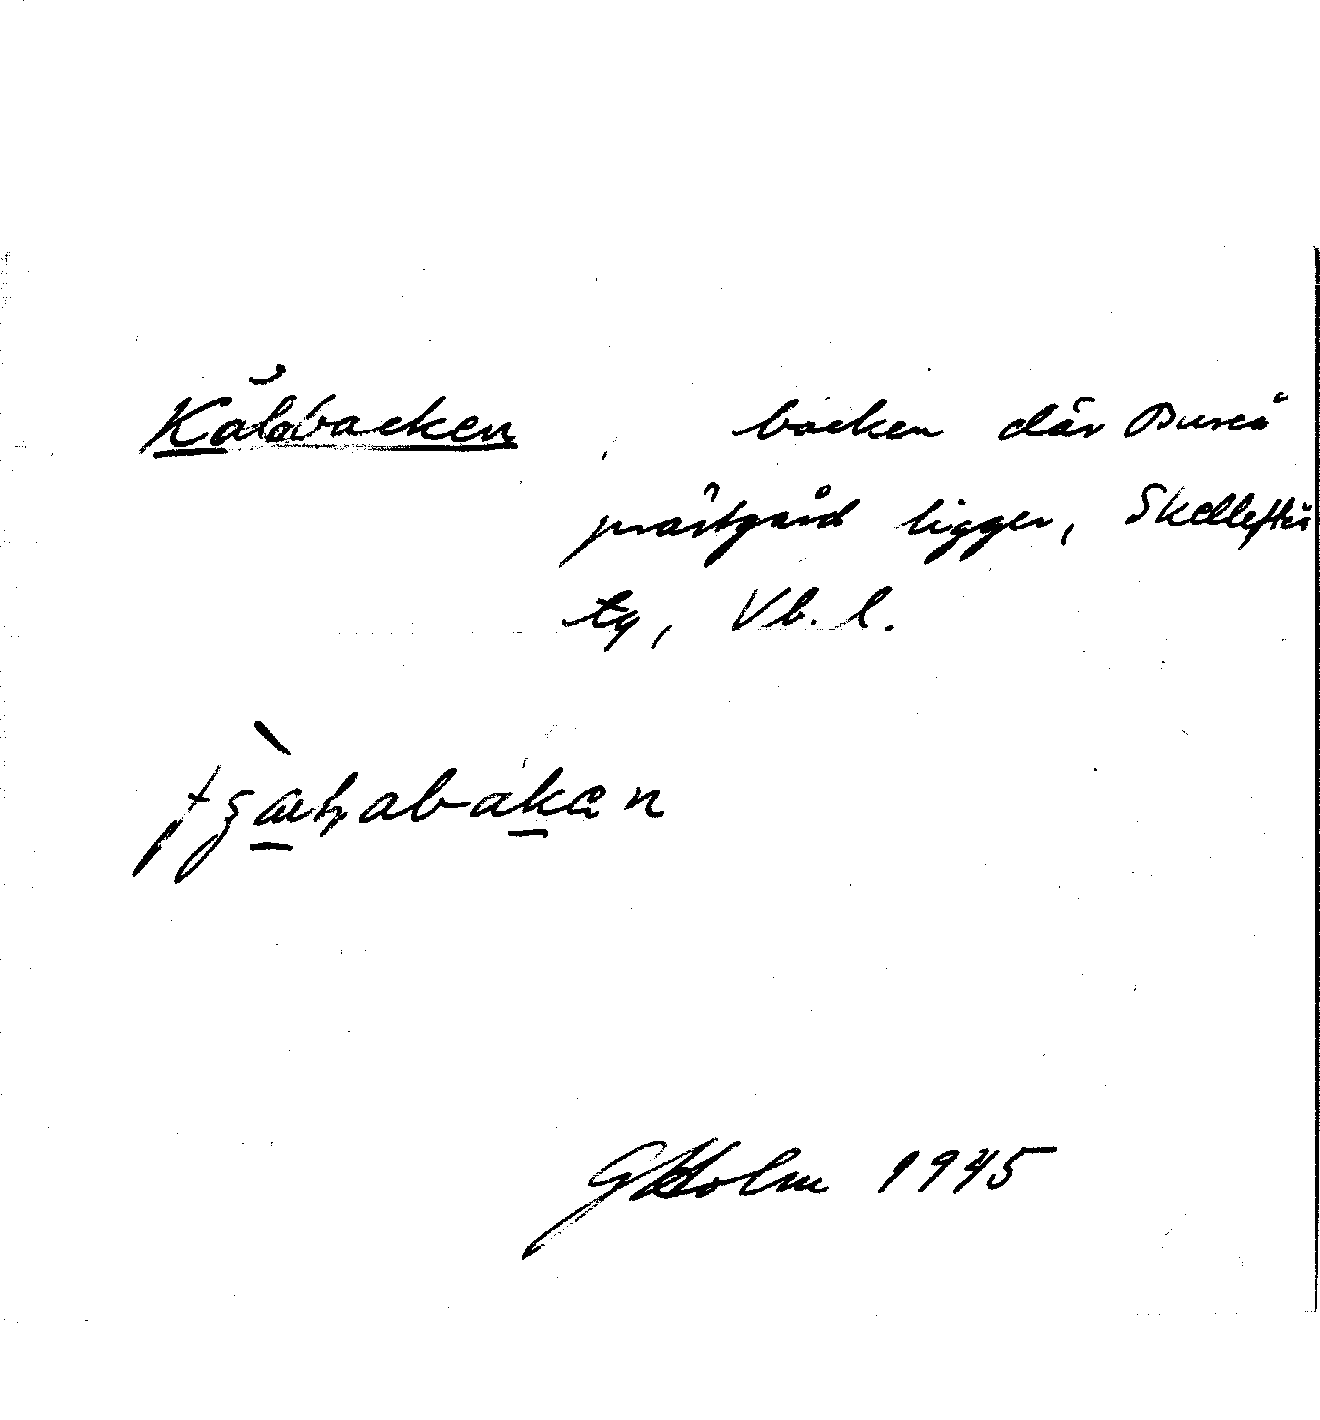 Kälabacken, backen där Bureå
prästgård ligger, Skellefteå
tg, Vb. l.
GHolm 1945